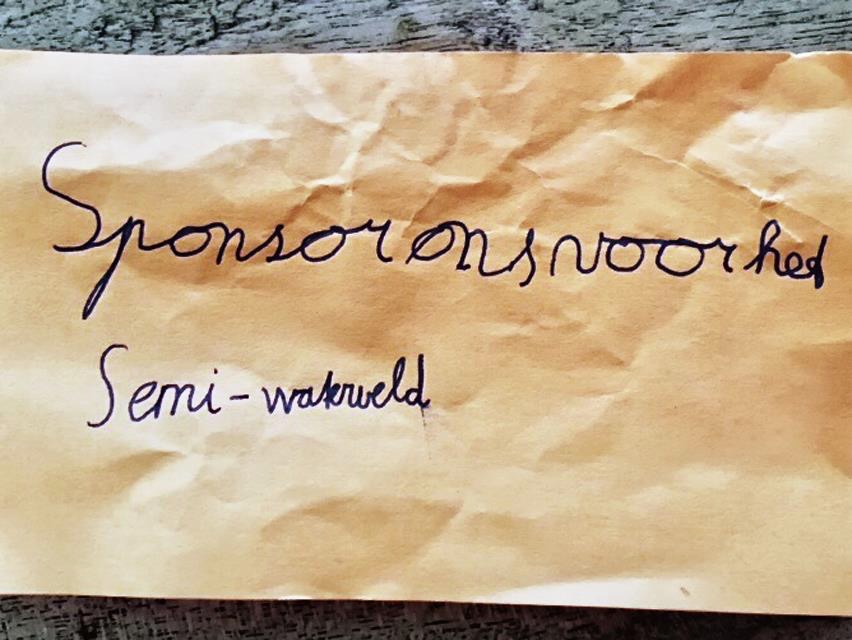 Sponsor ons voor het
Semi-waterveld